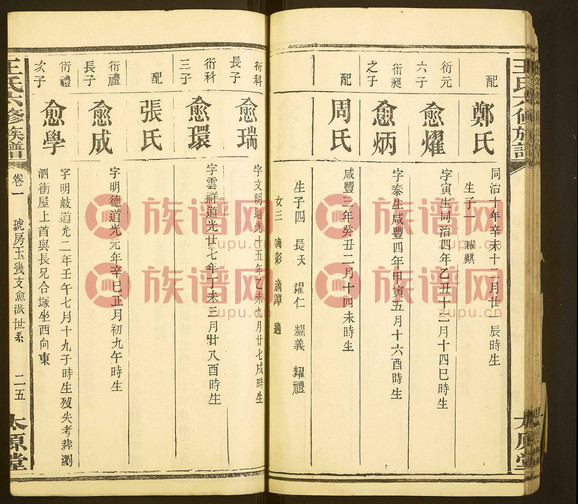 王氏六修族譜
太原堂
配
鄭氏
同治十年辛未十一月廿 辰時生
生子一 耀麒
衍元
六子
愈耀
字寅生同治四年乙丑十二月十四巳時生
衍昶
之子
愈炳
字泰生咸豐四年甲寅五月十六酉時生
配
周氏
咸豐三年癸丑二月十四未時生
生子四 長夭 耀仁 耀義 耀禮
女三 適彭 適譚 適
衍科
長子
愈瑞
字文明道光十五年乙未 月廿七戌時生
衍科
三子
愈環
字雲祥道光廿七年丁未三月廿八酉時生
配
張氏
衍禮
長子
愈成
字明德道光元年辛巳正月初九午時生
衍禮
次子
愈學
字明岐道光二年壬午七月十九子時生歿失考葬瀏
泗衝屋上首與長兄合塚坐西向東
王氏六修族譜
卷一
琥房玉璣支愈派世系
二一五
太原堂
族谱网
zupu.cn
族谱网
zupu.cn